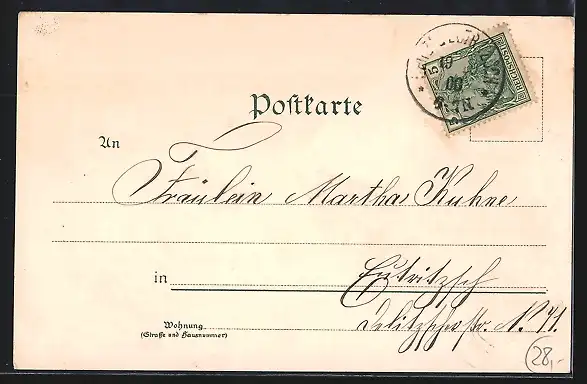 REICHSPOST
Postkarte
An
Fräulein Martha Kuhne
in Eutritzsch
Wohnung
(Straße und Hausnummer)
Delitzscherstr. N. 41.
28,-